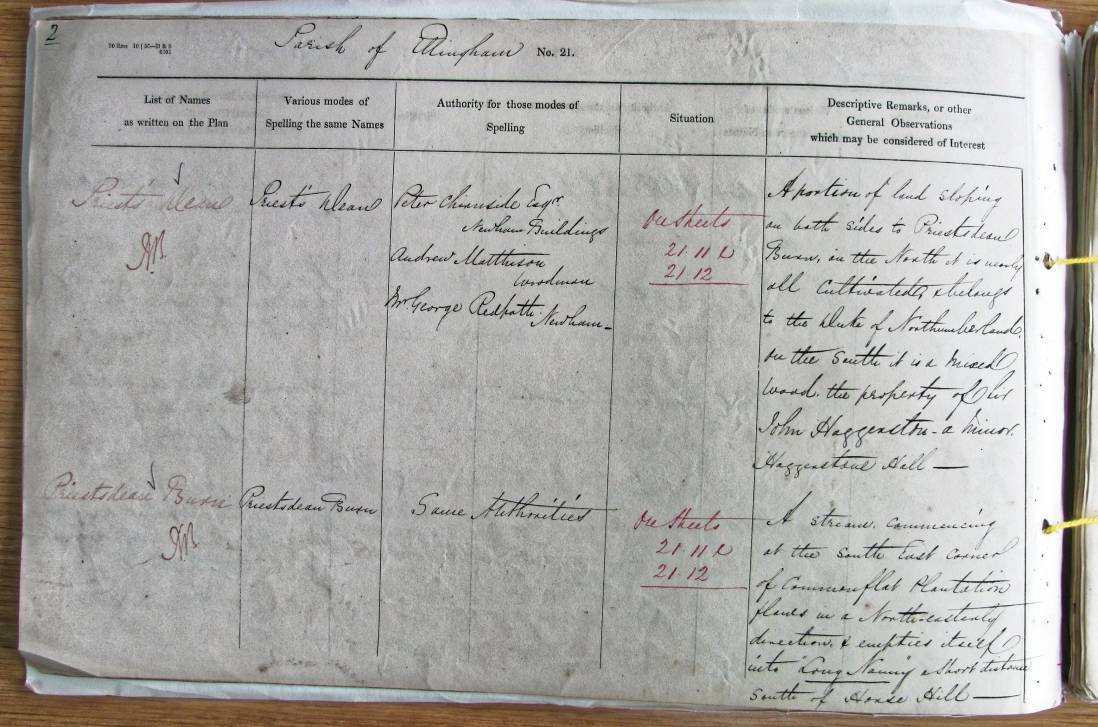 2
Parish of Ellingham No. 21.
List of Names
as written on the Plan
Various modes of
Spelling the same Names
Authority for those modes of
Spelling
Situation
Descriptive Remarks, or other
General Observations
which may be considered of Interest
Priest's Dean
Priest's Dean
Peter Chirnside Esqr.
Newham Buildings
Andrew Matthison
Woodman
Mr. George Redpath
Newham
On Sheets
21.11 &
21.12
A portion of land sloping
on both sides to Priestsdean
Burn, on the North it is nearly
all cultivated, & belongs
to the Duke of Northumberland.
on the South it is a mixed
wood. the property of Sir
John Haggerston - a Minor.
Haggerstone Hall —
Priestsdean Burn
Priestsdean Burn
Same Authorities
On Sheets
21.11 &
21.12
A stream. commencing
at the South East corner
of Commonflat Plantation
flows in a North-easterly
direction, & empties itself
into "Long Nanny" a short distance
South of House Hill —